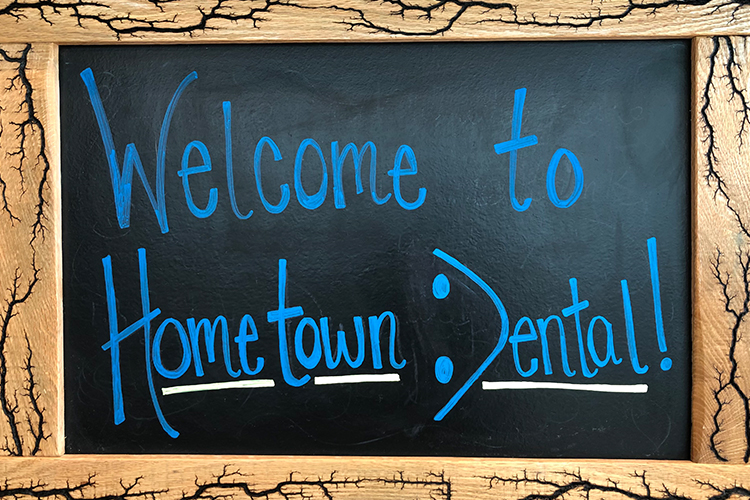 Welcome to
Hometown Dental!